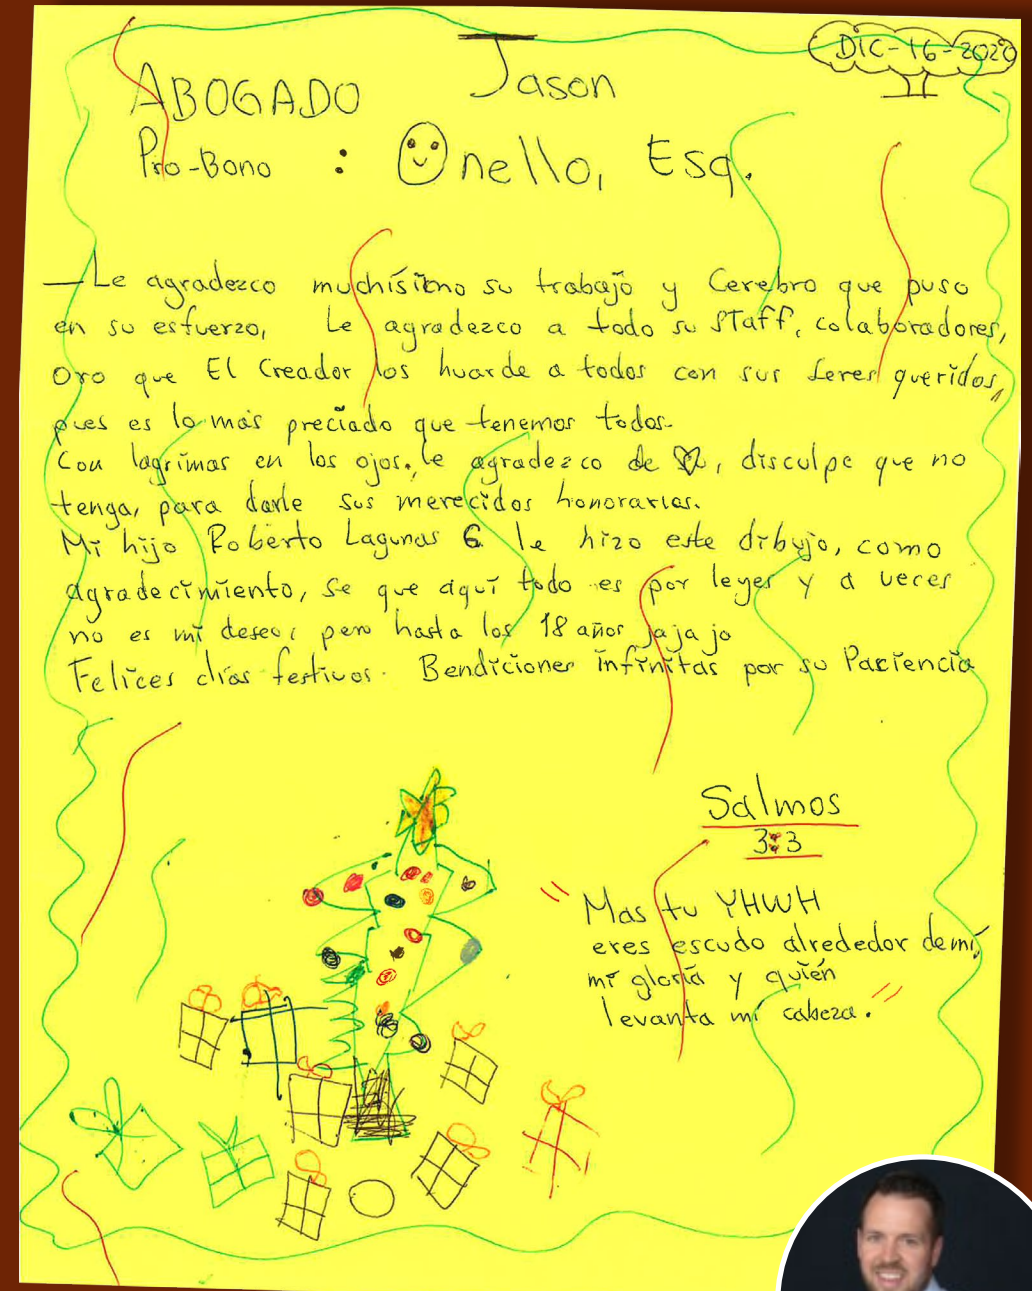 DIC-16-2020
ABOGADO Jason
Pro-Bono : Onello, Esq.
—Le agradezco muchísimo su trabajo y Cerebro que puso
en su esfuerzo, Le agradezco a todo su STaff, colaboradores,
oro que El Creador los huarde a todos con sus seres queridos,
pues es lo más preciado que tenemos todos.
Con lagrimas en los ojos, le agradezco de ♡, disculpe que no
tenga, para darle sus merecidos honorarios.
Mi hijo Roberto Lagunas G. le hizo este dibujo, como
agradecimiento, se que aquí todo es por leyes y a veces
no es mi deseo, pero hasta los 18 años jajaja
Felices días festivos. Bendiciones infinitas por su Paciencia
Salmos
3:3
"Mas tu YHWH
eres escudo alrededor de mí,
mi gloria y quién
levanta mi cabeza."